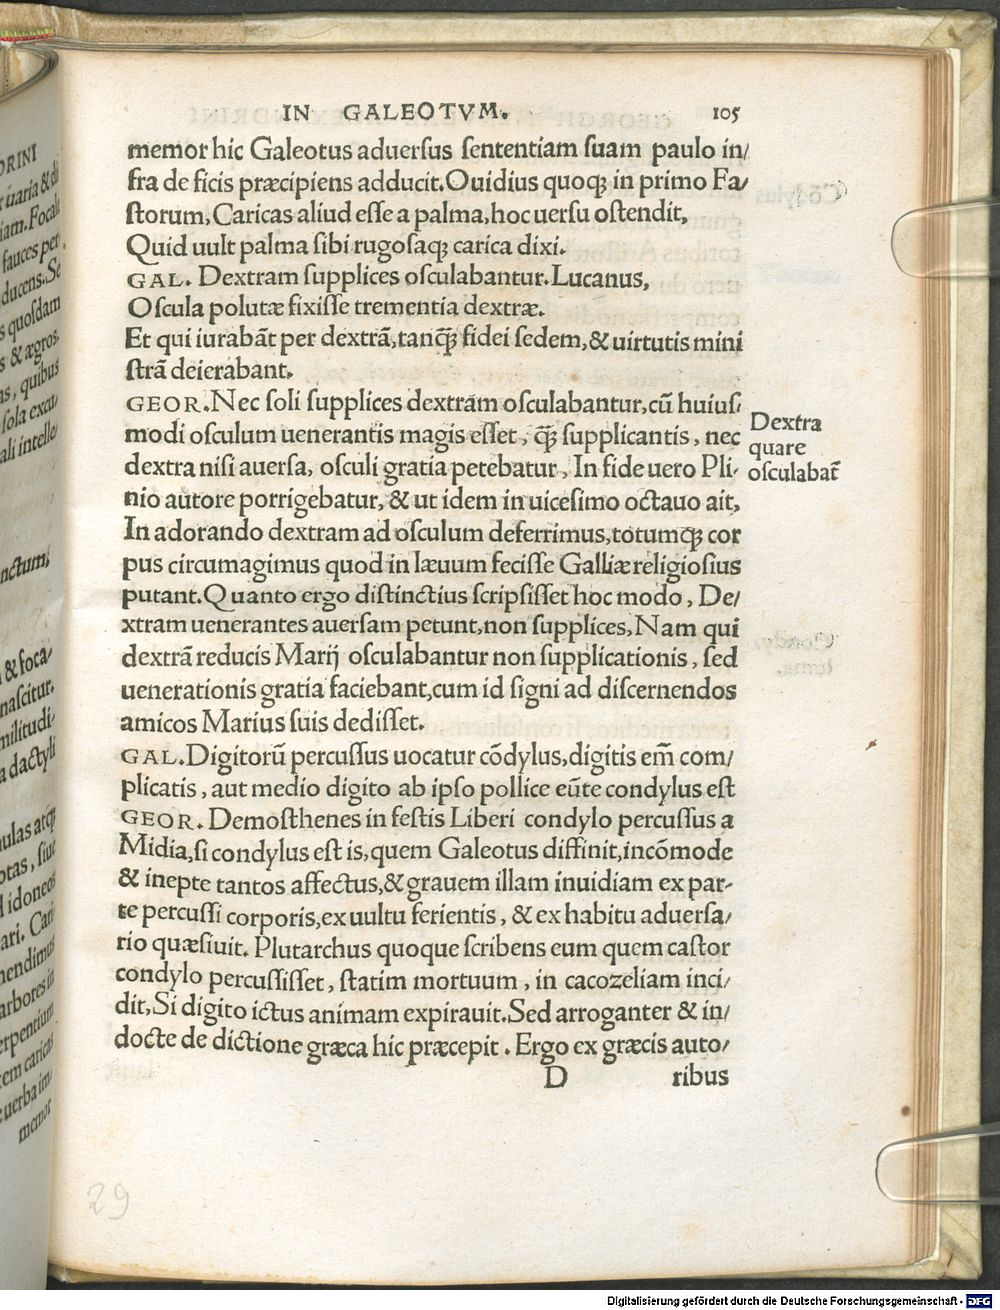 IN GALEOTVM. 105
memor hic Galeotus aduersus sententiam suam paulo in/
fra de ficis præcipiens adducit. Ouidius quoq; in primo Fa/
storum, Caricas aliud esse a palma, hoc uersu ostendit,
Quid uult palma sibi rugosaq; carica dixi.
GAL. Dextram supplices osculabantur. Lucanus,
Oscula polutæ fixisse trementia dextræ.
Et qui iurabāt per dextrā, tanq̃ fidei sedem, & uirtutis mini
strā deierabant.
GEOR. Nec soli supplices dextram osculabantur, cū huius/
modi osculum uenerantis magis esset, q̃ supplicantis, nec
dextra nisi auersa, osculi gratia petebatur, In fide uero Pli-
nio autore porrigebatur, & ut idem in uicesimo octauo ait,
In adorando dextram ad osculum deferrimus, totumq; cor
pus circumagimus quod in læuum fecisse Galliæ religiosius
putant. Quanto ergo distinctius scripsisset hoc modo, De/
xtram uenerantes auersam petunt, non supplices, Nam qui
dextrā reducis Marij osculabantur non supplicationis, sed
uenerationis gratia faciebant, cum id signi ad discernendos
amicos Marius suis dedisset.
GAL. Digitorū percussus uocatur cōdylus, digitis em̄ com/
plicatis, aut medio digito ab ipso pollice eūte condylus est
GEOR. Demosthenes in festis Liberi condylo percussus a
Midia, si condylus est is, quem Galeotus diffinit, incōmode
& inepte tantos affectus, & grauem illam inuidiam ex par-
te percussi corporis, ex uultu ferientis, & ex habitu aduersa/
rio quæsiuit. Plutarchus quoque scribens eum quem castor
condylo percussisset, statim mortuum, in cacozeliam inci/
dit, Si digito ictus animam expirauit. Sed arroganter & in/
docte de dictione græca hic præcepit. Ergo ex græcis auto/
D ribus
Dextra
quare
osculabat̃
29
DRINI
uaria & di
iam. Focale
fauces pet
ducens. Se
s quosdam
s & ægros.
ns, quibus
sola excu/
ali intelle/
nctum,
& foca/
nascitur.
militudi/
a dactyli
ulas atq;
otas, siue
d idoneos
ari. Cari
endimus
arbores in
erpentium
em caricas
uerba im/
memor
Digitalisierung gefördert durch die Deutsche Forschungsgemeinschaft - DFG